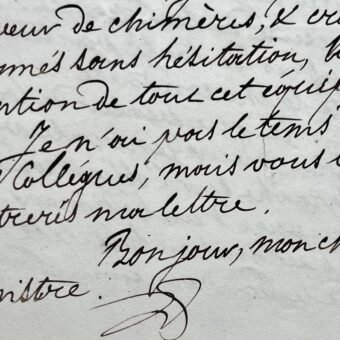 veur de chimères, & cr
nnés sans hésitation, b
ention de tout cet équip
Je n'ai pas le tems
Collégues, mais vous
trerés ma lettre.
Bonjour, mon ch
nistre.